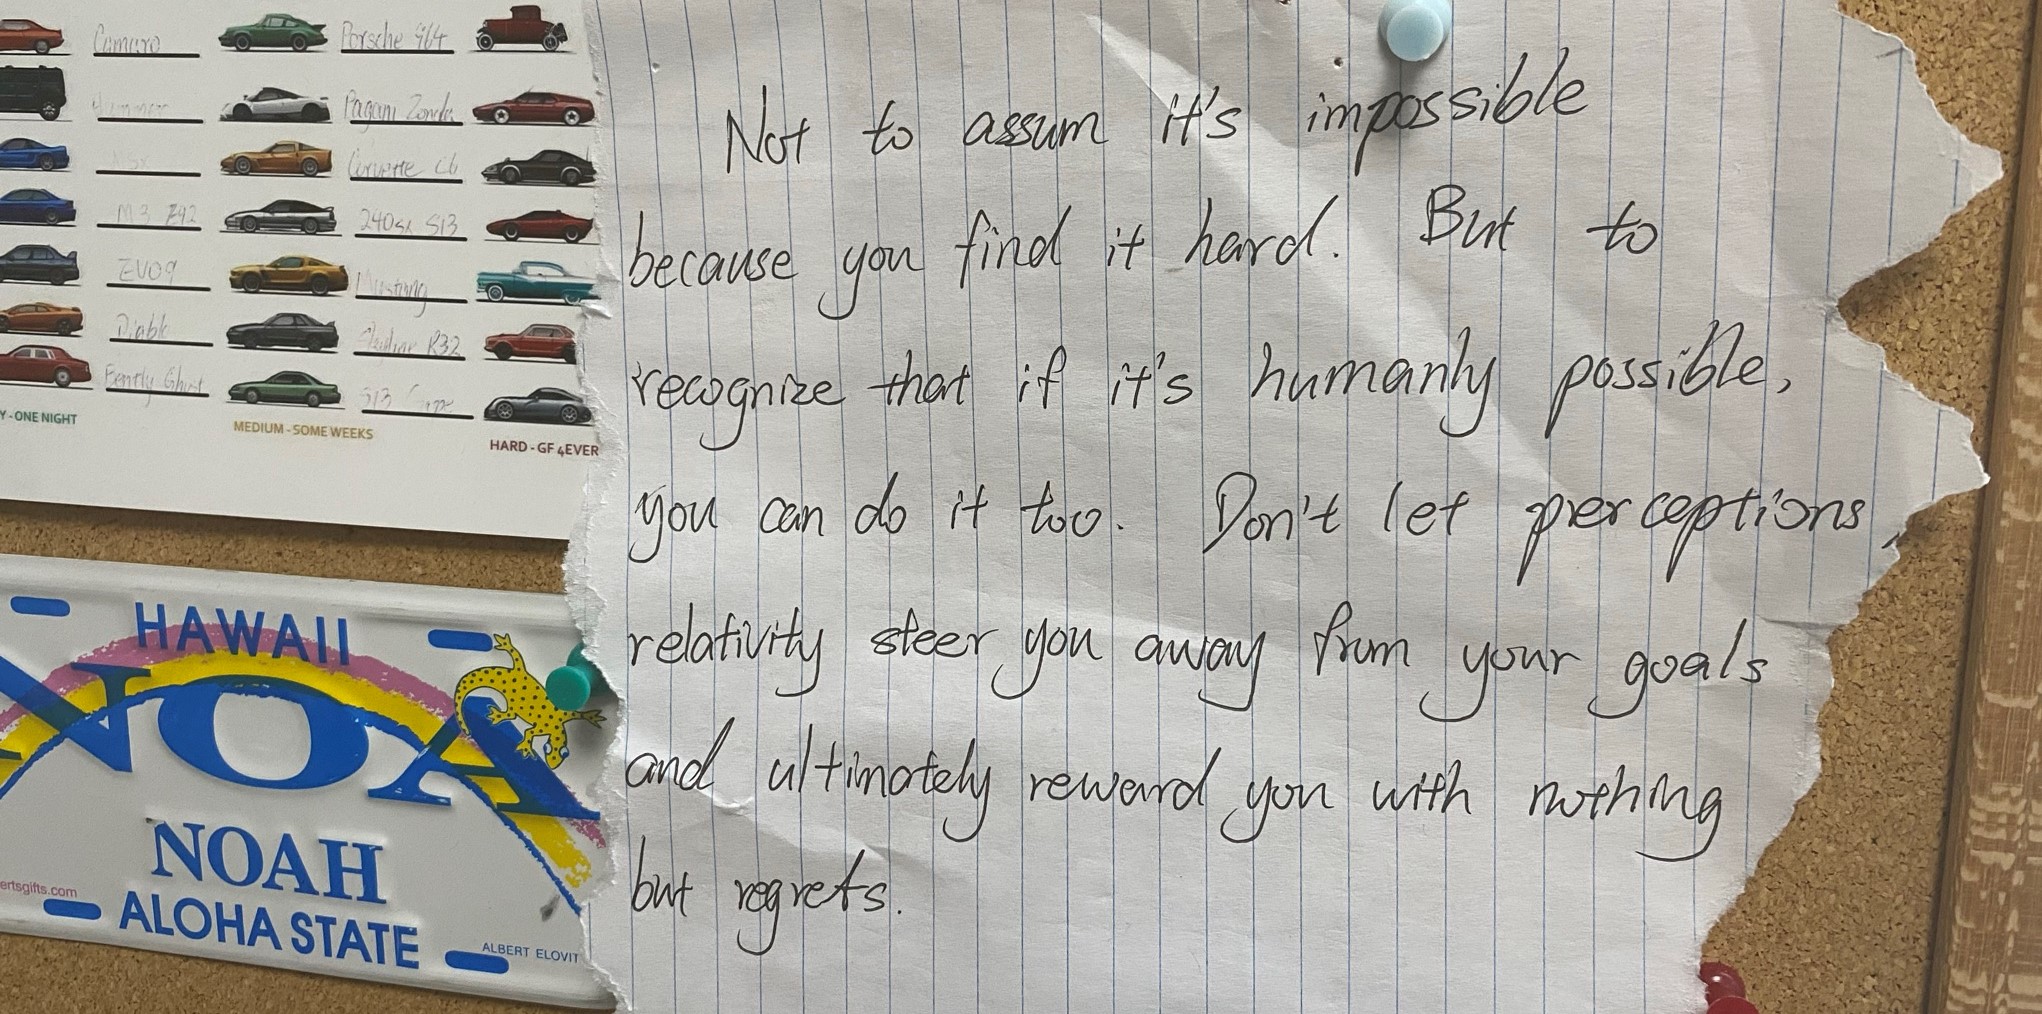 Camaro
Porsche 964
Hummer
Pagani Zonda
Nsx
Corvette C6
M3 E92
240sx S13
EVO9
Mustang
Diablo
Skyline R32
Bently Ghost
S13
Y - ONE NIGHT
MEDIUM - SOME WEEKS
HARD - GF 4EVER
HAWAII
NOA
NOAH
ertsgifts.com
ALOHA STATE
ALBERT ELOVIT
Not to assum it's impossible
because you find it hard. But to
recognize that if it's humanly possible,
you can do it too. Don't let perceptions,
relativity steer you away from your goals
and ultimately reward you with nothing
but regrets.